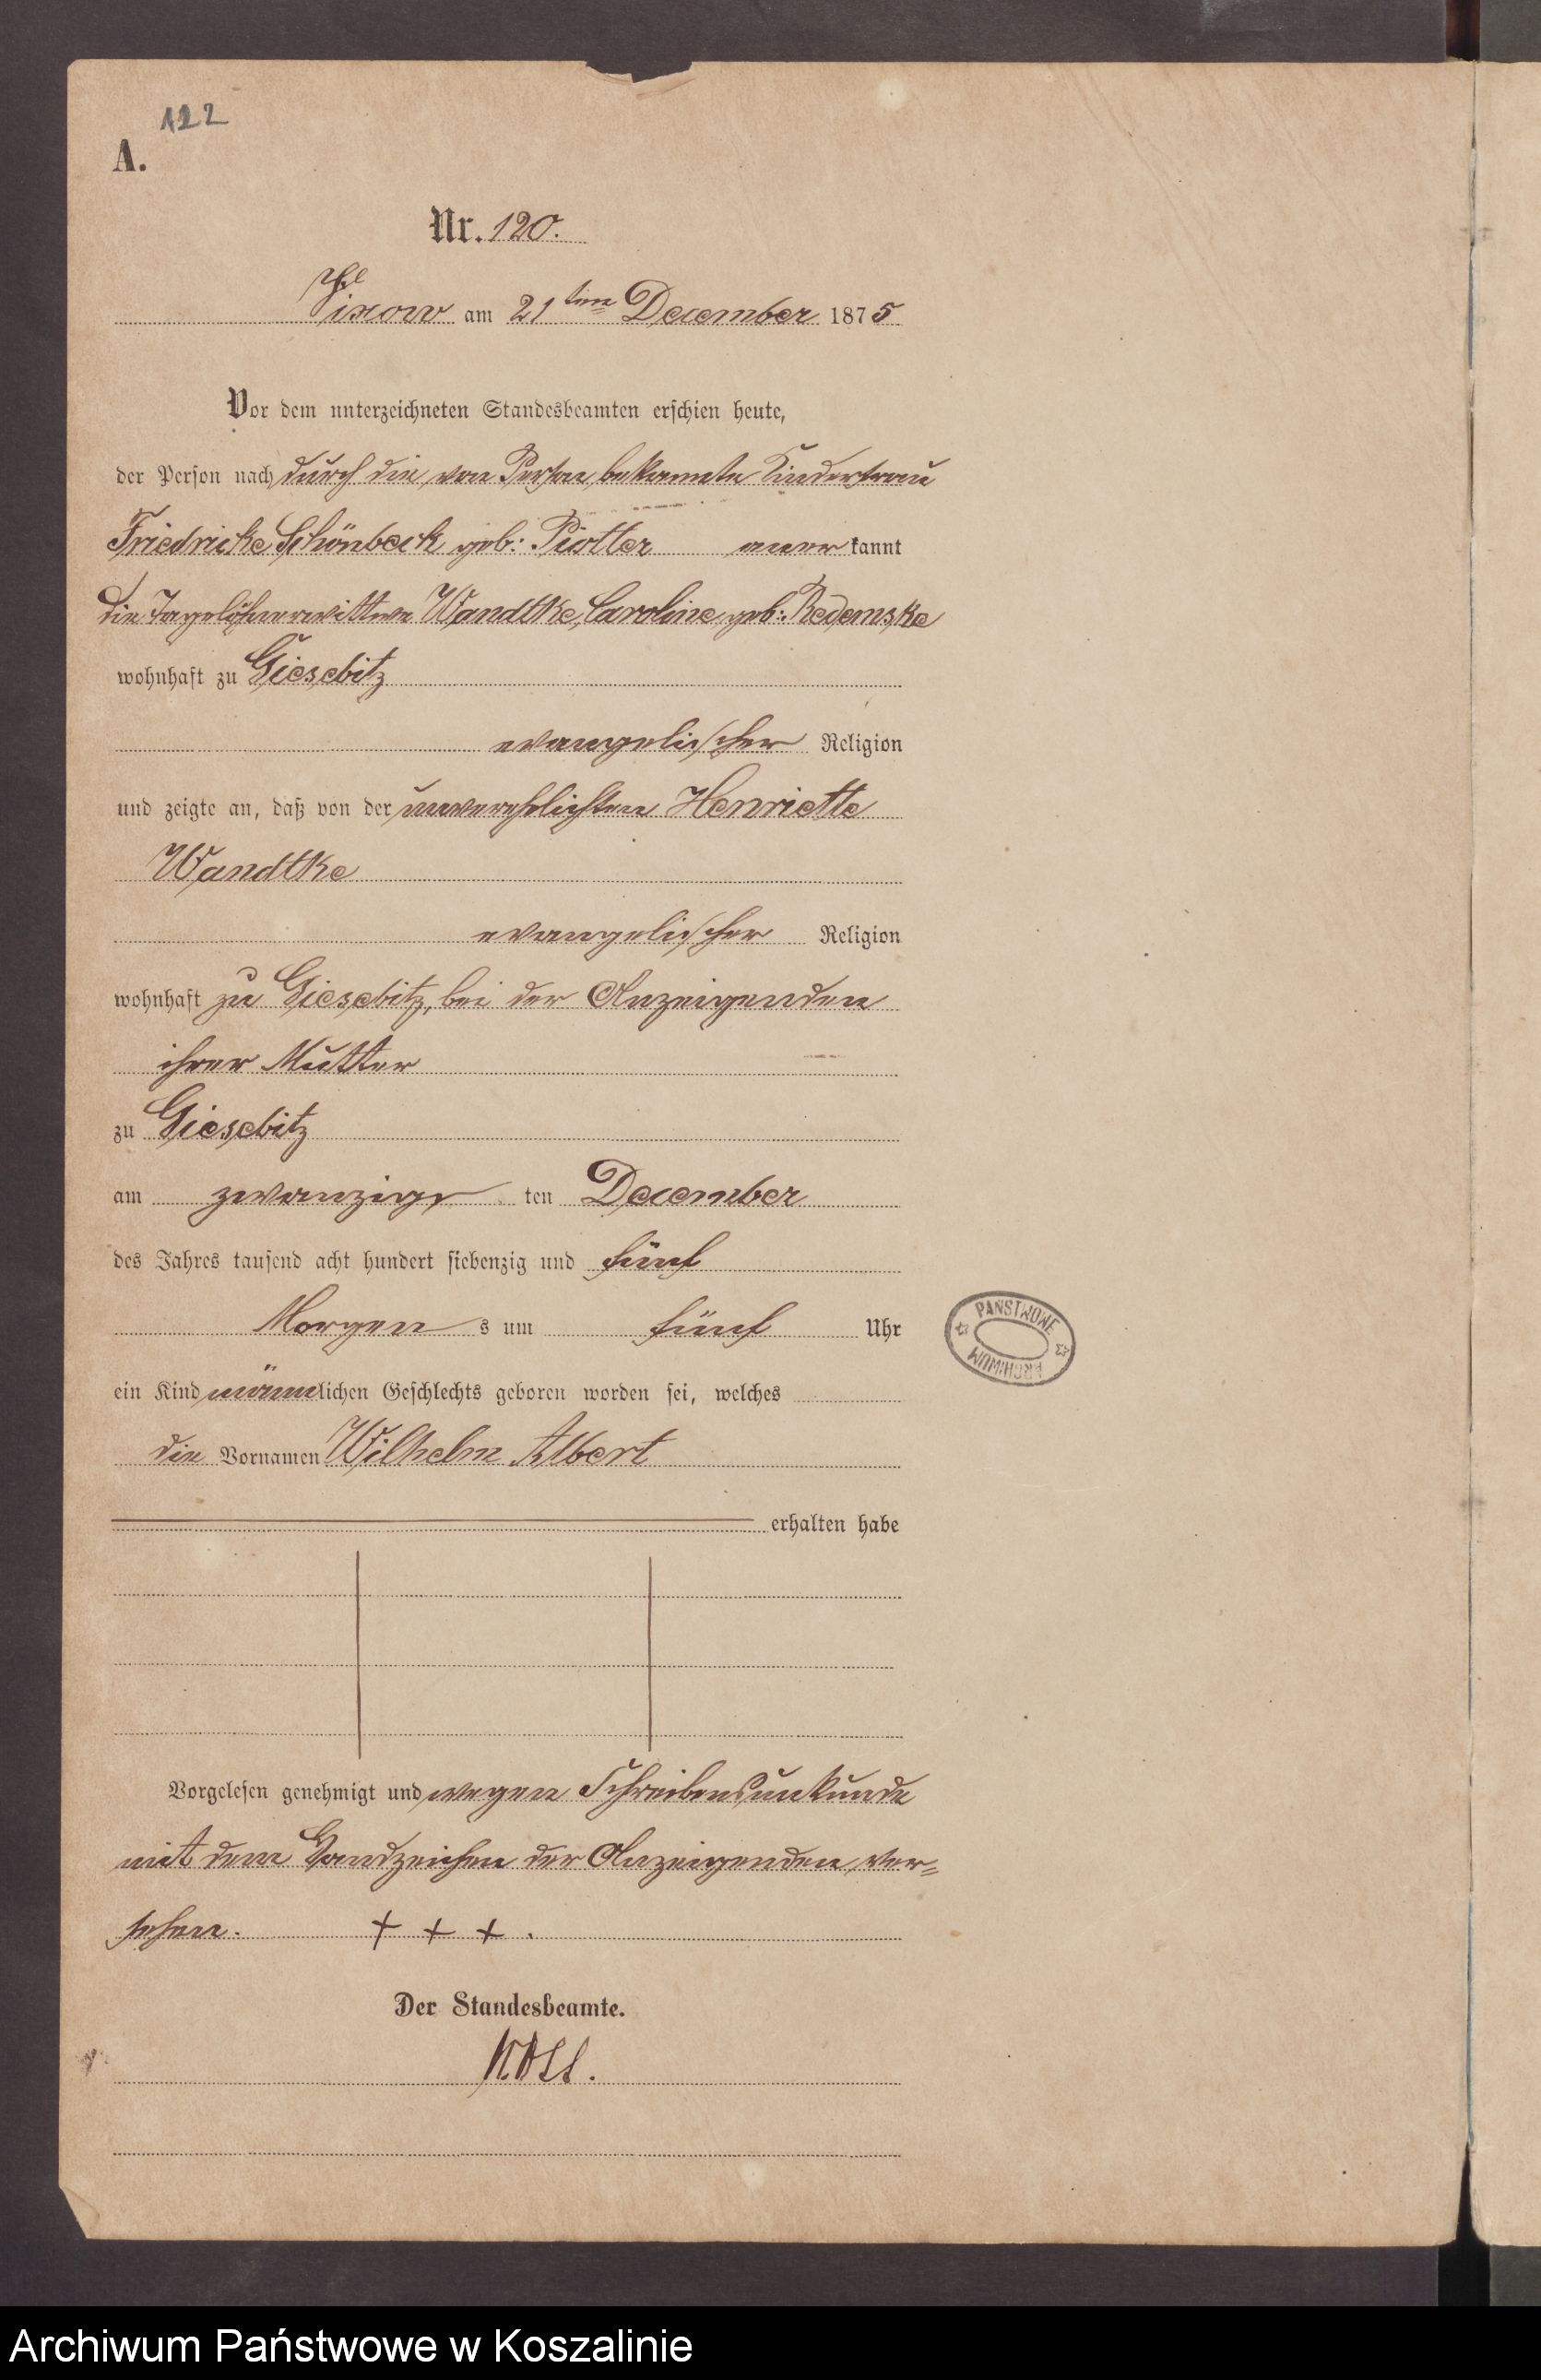 122
A.
Nr. 120.
Zixow am 21ten December 1875
Vor dem unterzeichneten Standesbeamten erschien heute,
der Person nach durch die von Person bekannte Kinderfrau
Friedricke Schönbeck geb: Piotter aner kannt
die Tagelöhnerwittwe Wandtke, Caroline geb: Redemske
wohnhaft zu Giesebitz
evangelischer Religion
und zeigte an, daß von der unverehelichten Henriette
Wandtke
evangelischer Religion
wohnhaft zu Giesebitz, bei der Anzeigenden
ihrer Mutter
zu Giesebitz
am zwanzigs ten December
des Jahres tausend acht hundert siebenzig und fünf
Morgen s um fünf Uhr
ein Kind männlichen Geschlechts geboren worden sei, welches
die Vornamen Wilhelm Albert
erhalten habe
Vorgelesen genehmigt und wegen Schreibensunkunde
mit dem Handzeichen der Anzeigenden ver=
sehen. + + + .
Der Standesbeamte.
Koss.
PAŃSTWOWE ARCHIWUM
Archiwum Państwowe w Koszalinie